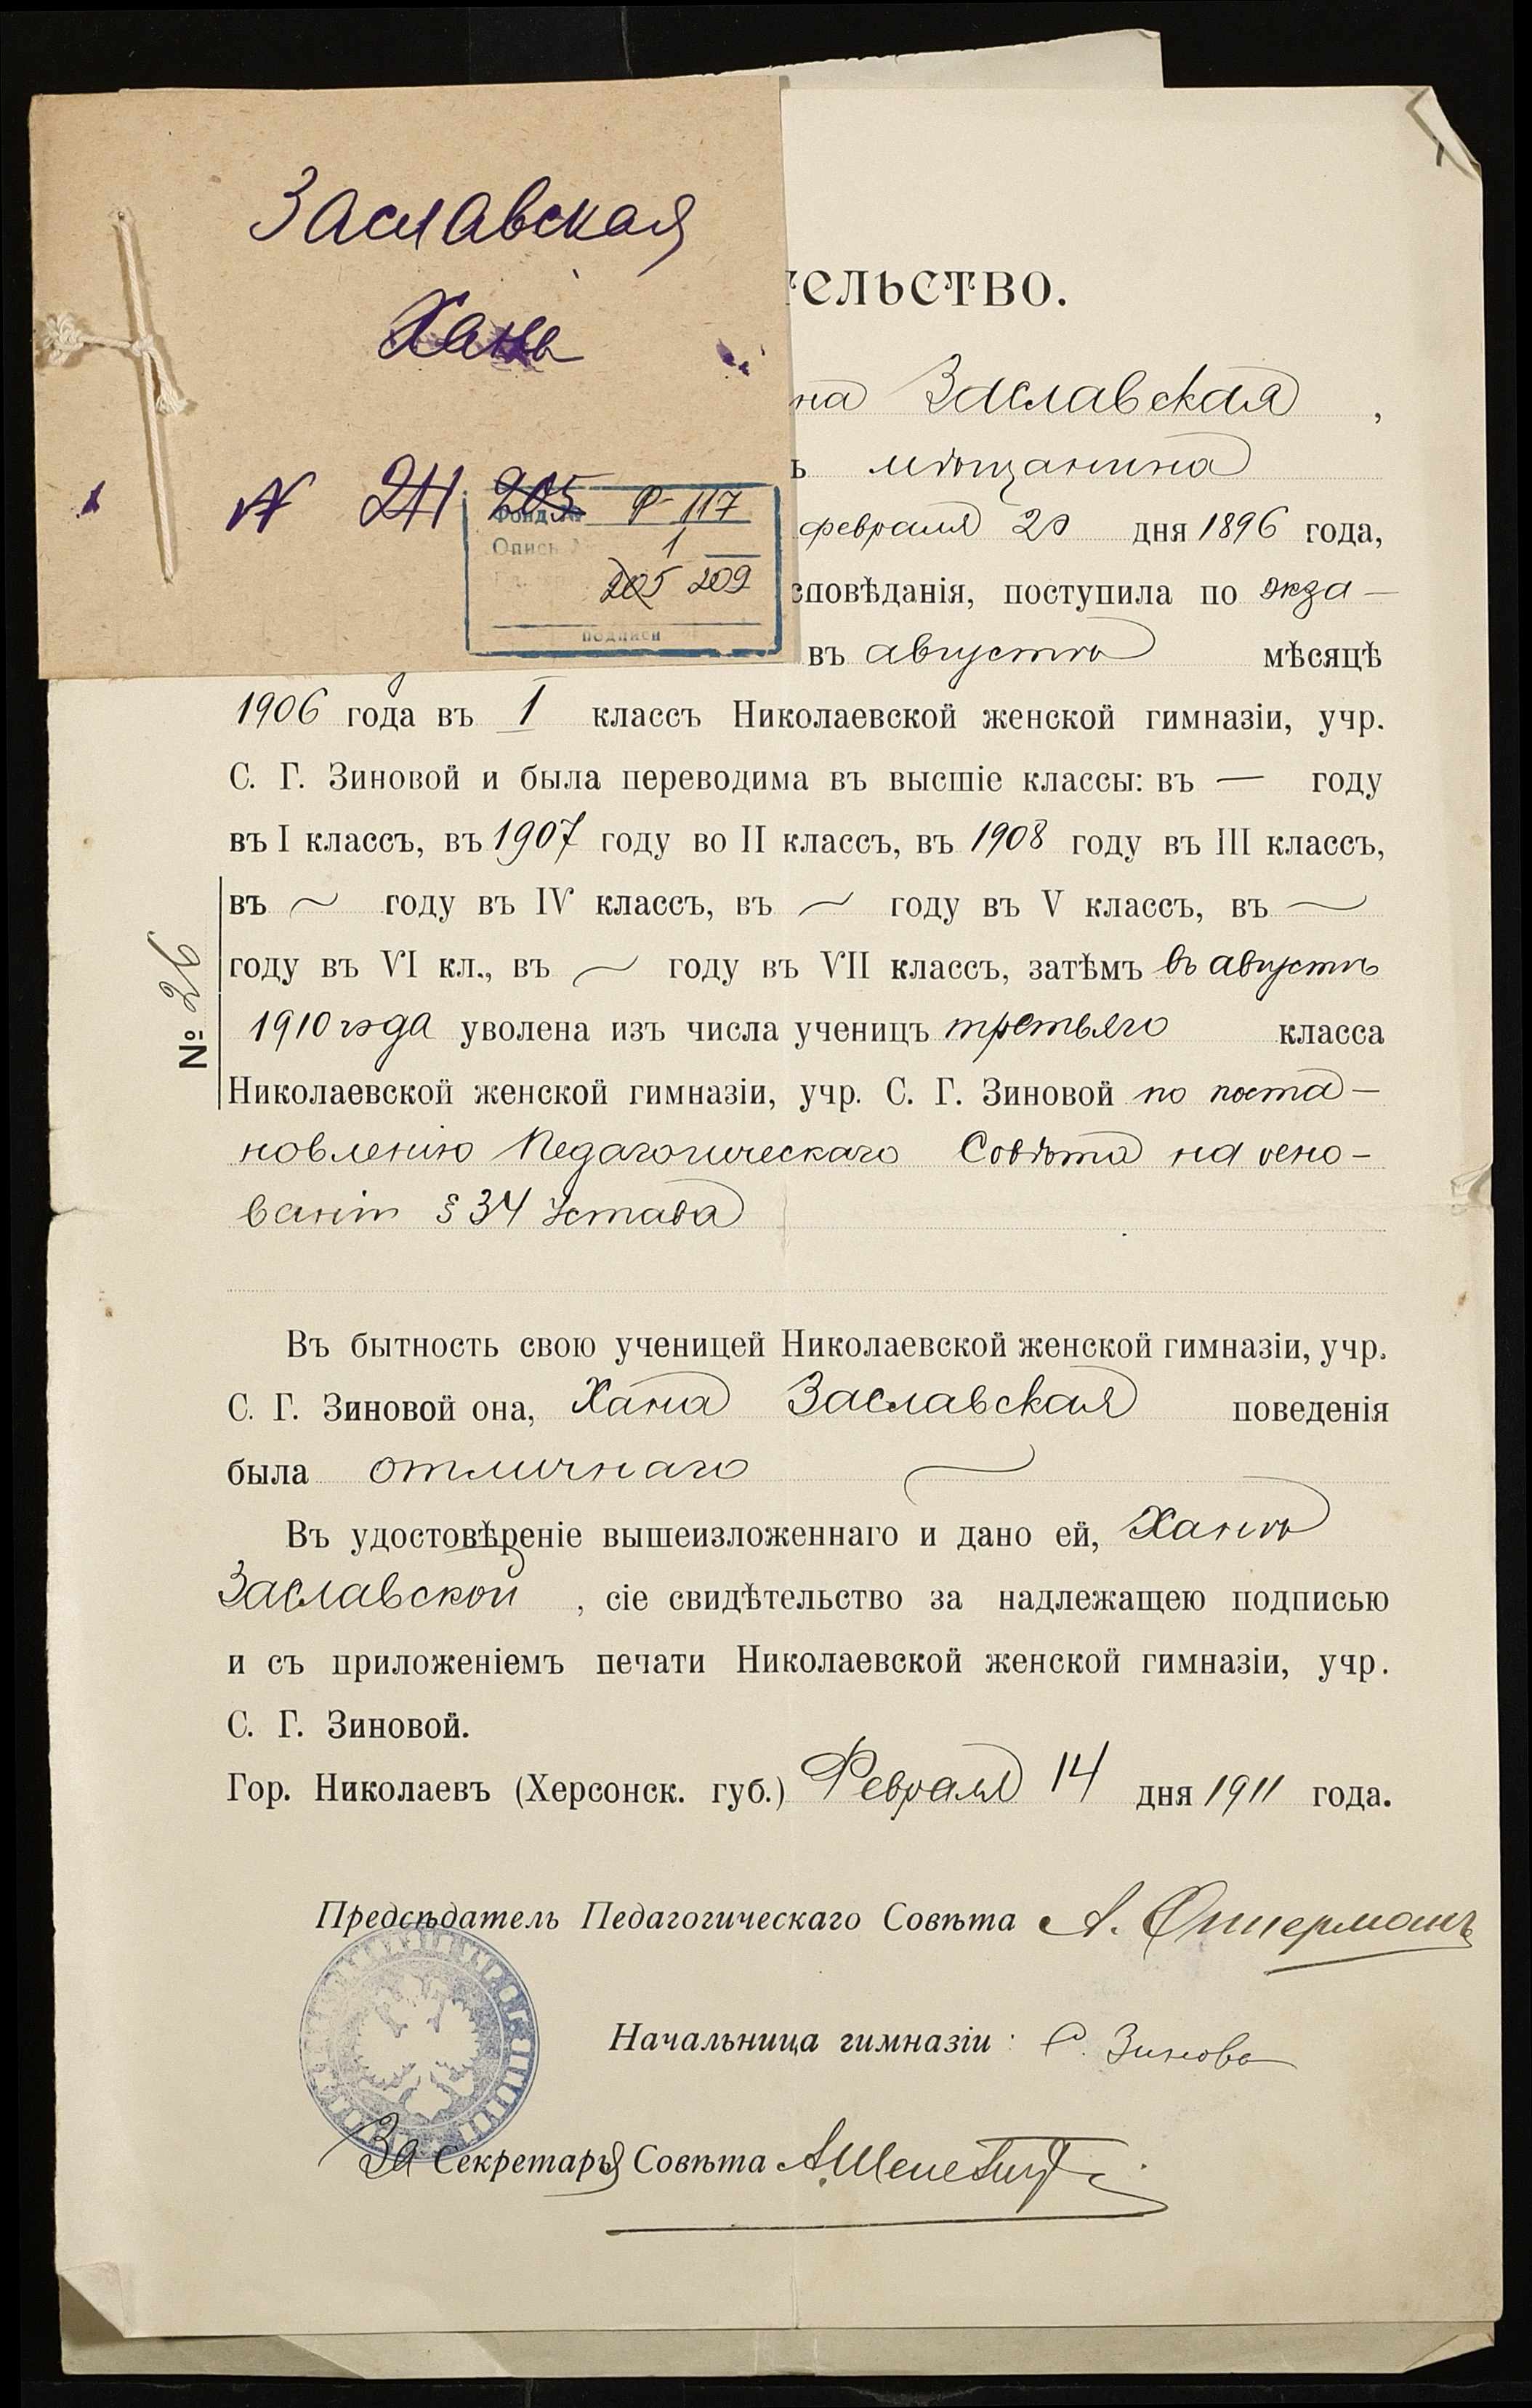 Заславская
Хана
№ 211 205
Фонд № Р-117
Опись № 1
205 209
подписи
тельство.
на Заславская,
ъ мѣщанина
февраля 20 дня 1896 года,
сповѣданія, поступила по экза-
въ августѣ мѣсяцѣ
1906 года въ I классъ Николаевской женской гимназіи, учр.
С. Г. Зиновой и была переводима въ высшіе классы: въ — году
въ I классъ, въ 1907 году во II классъ, въ 1908 году въ III классъ,
въ ~ году въ IV классъ, въ ~ году въ V классъ, въ ~
году въ VI кл., въ ~ году въ VII классъ, затѣмъ въ августѣ
1910 года уволена изъ числа ученицъ третьяго класса
Николаевской женской гимназіи, учр. С. Г. Зиновой по поста-
новленію Педагогическаго Совѣта на осно-
ваніи § 34 Устава
№ 26
Въ бытность свою ученицей Николаевской женской гимназіи, учр.
С. Г. Зиновой она, Хана Заславская поведенія
была отличнаго
Въ удостовѣреніе вышеизложеннаго и дано ей, Ханѣ
Заславской, сіе свидѣтельство за надлежащею подписью
и съ приложеніемъ печати Николаевской женской гимназіи, учр.
С. Г. Зиновой.
Гор. Николаевъ (Херсонск. губ.) Февраля 14 дня 1911 года.
Предсѣдатель Педагогическаго Совѣта А.
Начальница гимназіи: С. Зинова
За Секретаря Совѣта А.